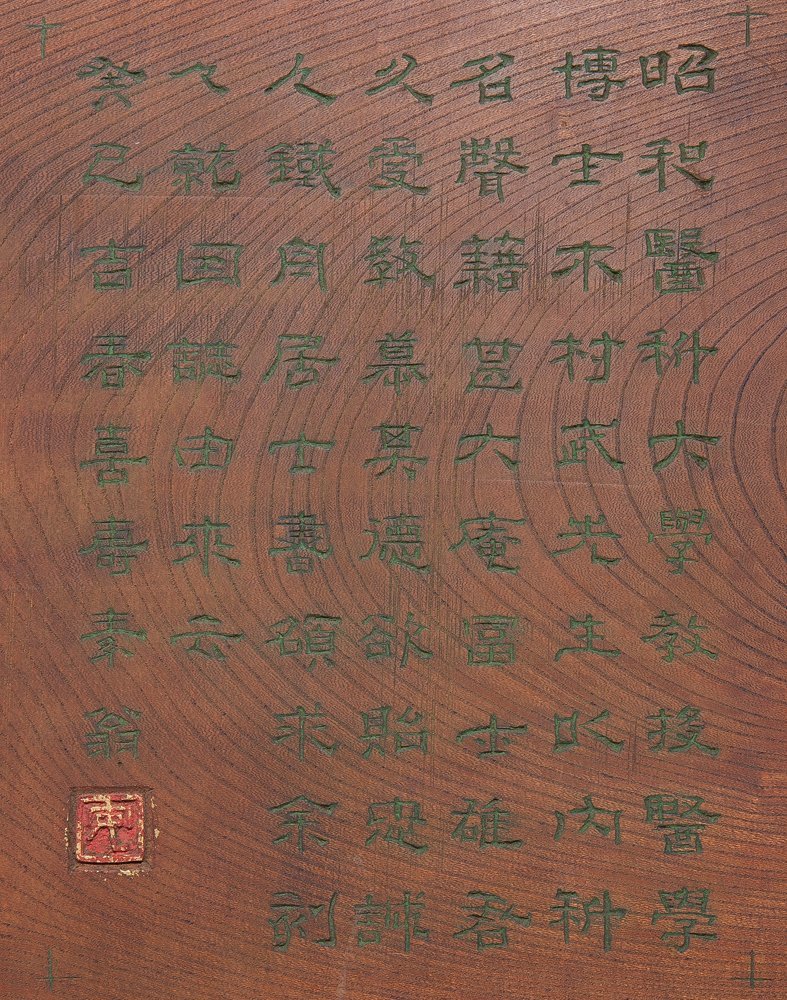 昭和醫科大學教授醫學
博士木村武先生以内科
名聲籍甚大庵冨士雄君
久受教慕其德欲貽忠誠
之鐵舟居士書額求余刻
之就因誌由來云
癸巳吉春喜壽素翁